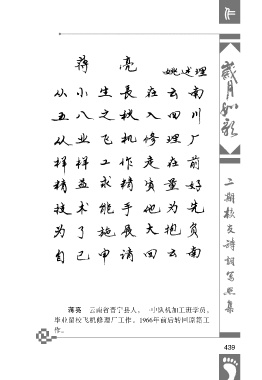 作
歲月如歌
二期校友詩詞寫照集
蒋亮
姚述理
从小生長在云南
五八之秋入四川
从业飞机修理厂
样样工作走在前
精益求精质量好
技术能手他为先
为了施展大抱负
自己申请回云南
蒋亮 云南省晋宁县人。一中队机加工班学员。
毕业留校飞机修理厂工作。1966年前后转回原籍工
作。
439